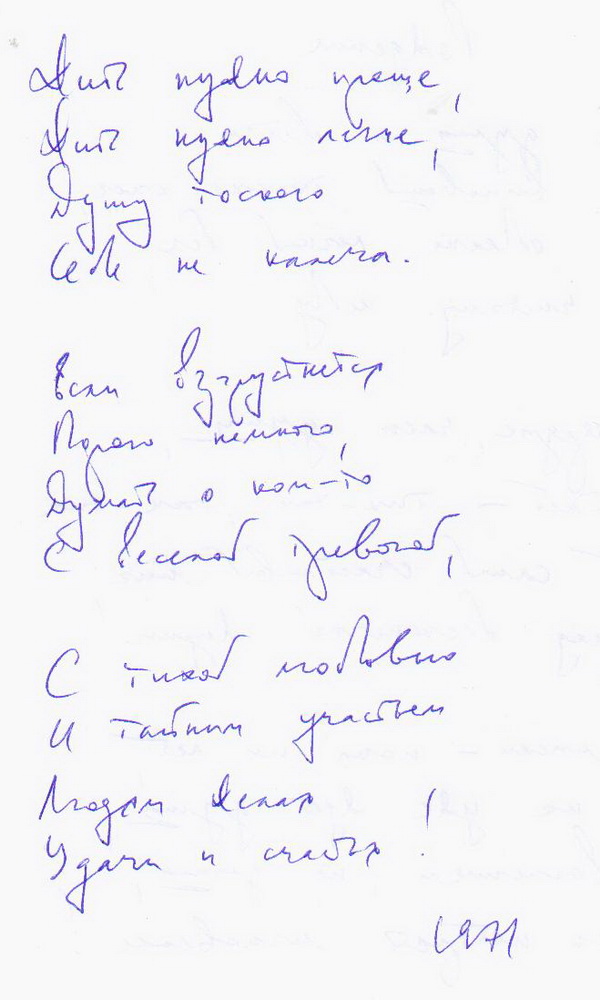 Жить нужно проще,
Жить нужно легче,
Душу тоскою
Себе не калеча.
Если взгрустнется
Порою немного,
Думать о ком-то
С веселой тревогой,
С тихой любовью
И тайным участьем
Людям желая
Удачи и счастья!
1971